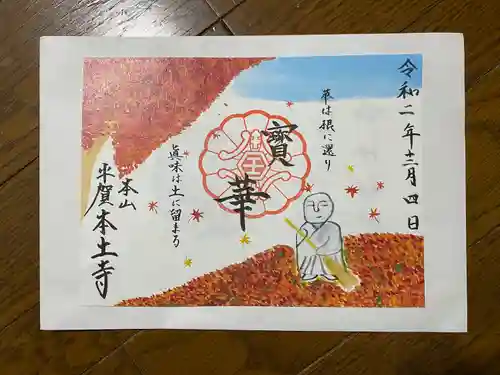 令和二年十二月四日
華は根に還り
寳華
眞味は土に留まる
本山
平賀本土寺